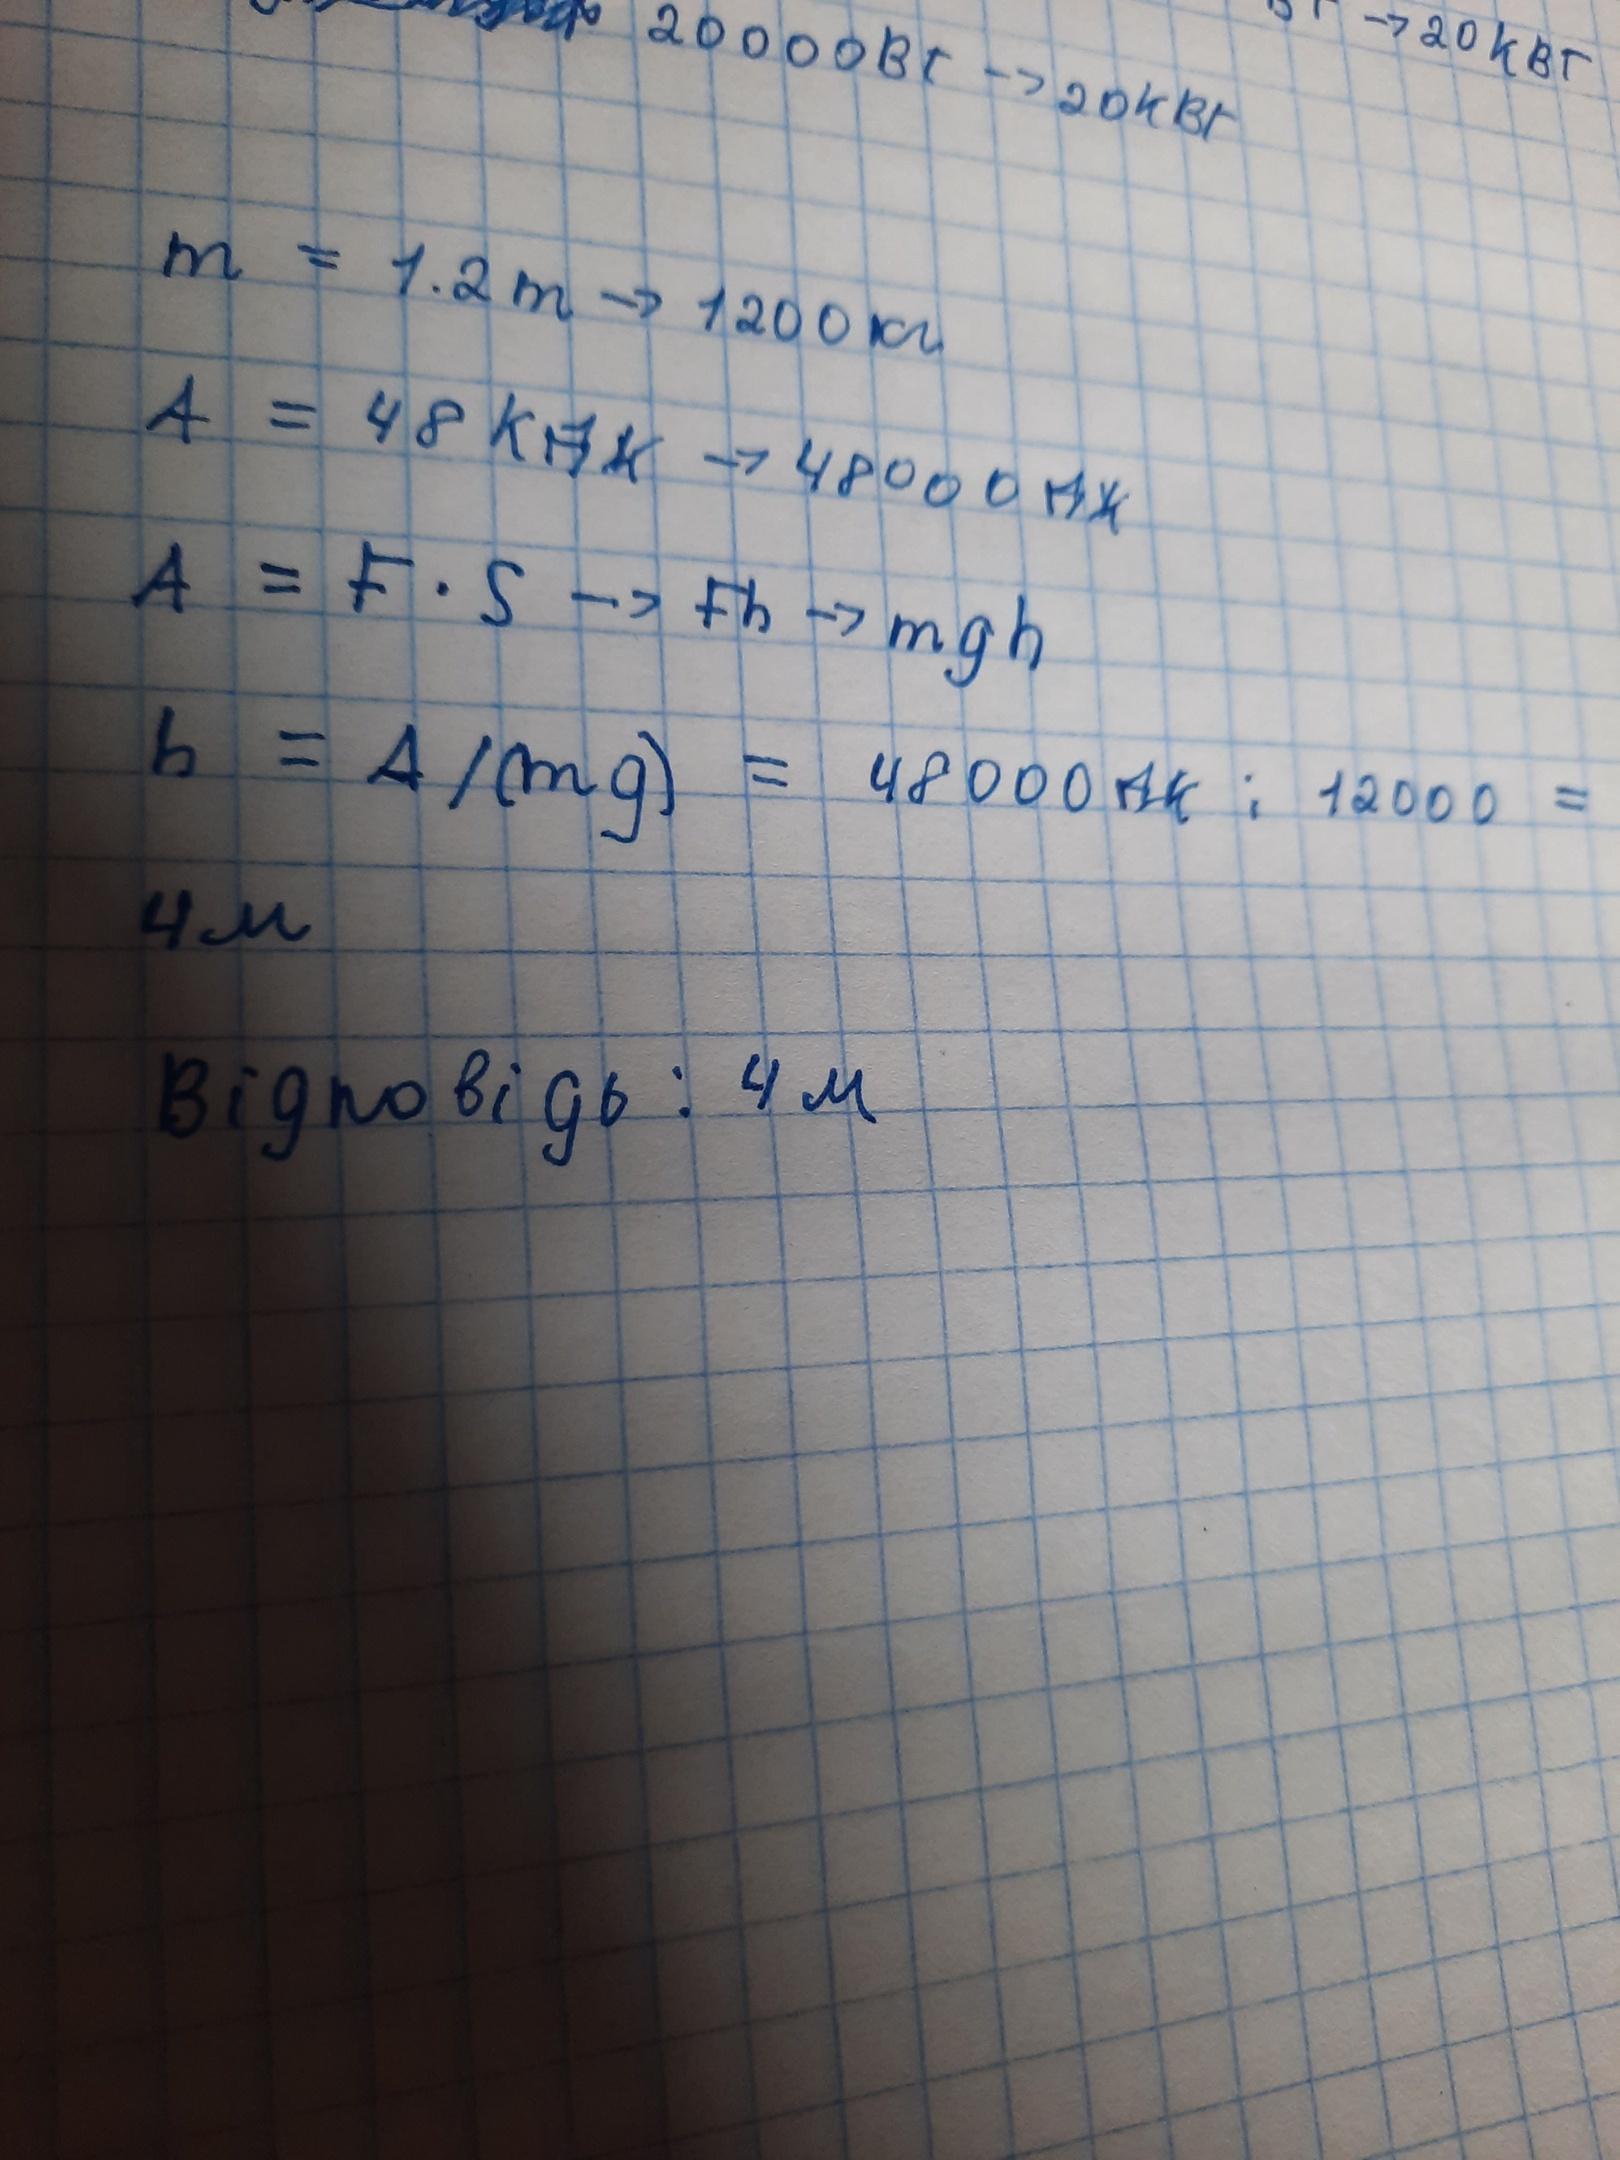 20000Вт -> 20кВт
Вт -> 20кВт
m = 1.2т -> 1200кг
A = 48кДж -> 48000Дж
A = F · S -> Fh -> mgh
h = A/(mg) = 48000Дж : 12000 =
4м
Відповідь : 4м